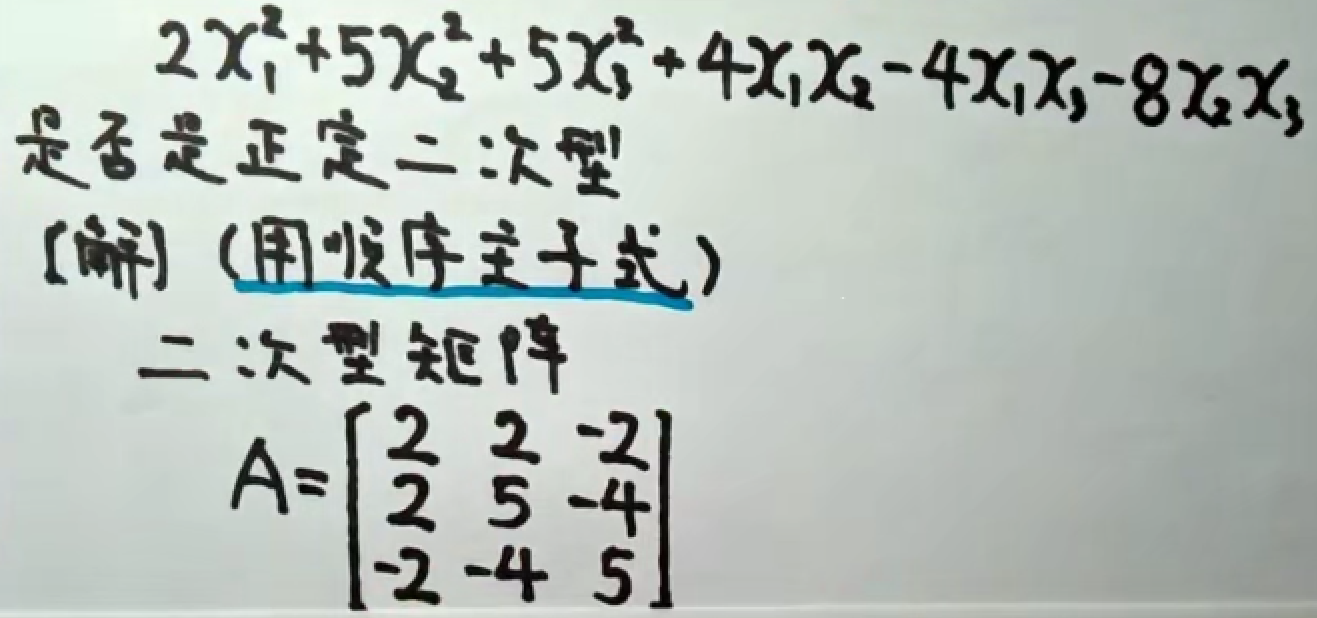 2x₁²+5x₂²+5x₃²+4x₁x₂-4x₁x₃-8x₂x₃
是否是正定二次型
[解](用顺序主子式)
二次型矩阵
A=[2 2 -2
2 5 -4
-2 -4 5]